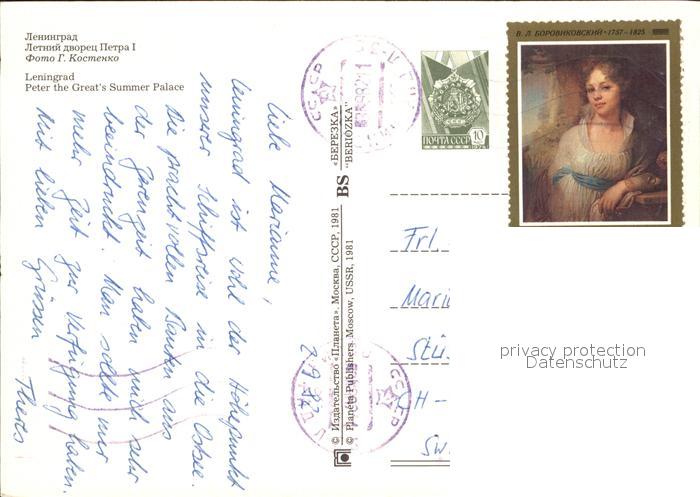 Ленинград
Летний дворец Петра I
Фото Г. Костенко
Leningrad
Peter the Great's Summer Palace
Liebe Marianne,
Leningrad ist wohl der Höhepunkt
unserer Schiffsreise in die Ostsee.
Die prachtvollen Bauten aus
der Zarenzeit haben mich sehr
beeindruckt. Man sollte nur
mehr Zeit zur Verfügung haben.
Mit lieben Grüssen
Theres
2.9.82
© Издательство «Планета». Москва, СССР, 1981
© Planeta Publishers. Moscow, USSR, 1981
BS «БЕРЕЗКА»
"BERIOZKA"
СССР
ПОЧТА СССР 10
В. Л. БОРОВИКОВСКИЙ • 1757–1825
Frl
CH-
СССР
privacy protection
Datenschutz